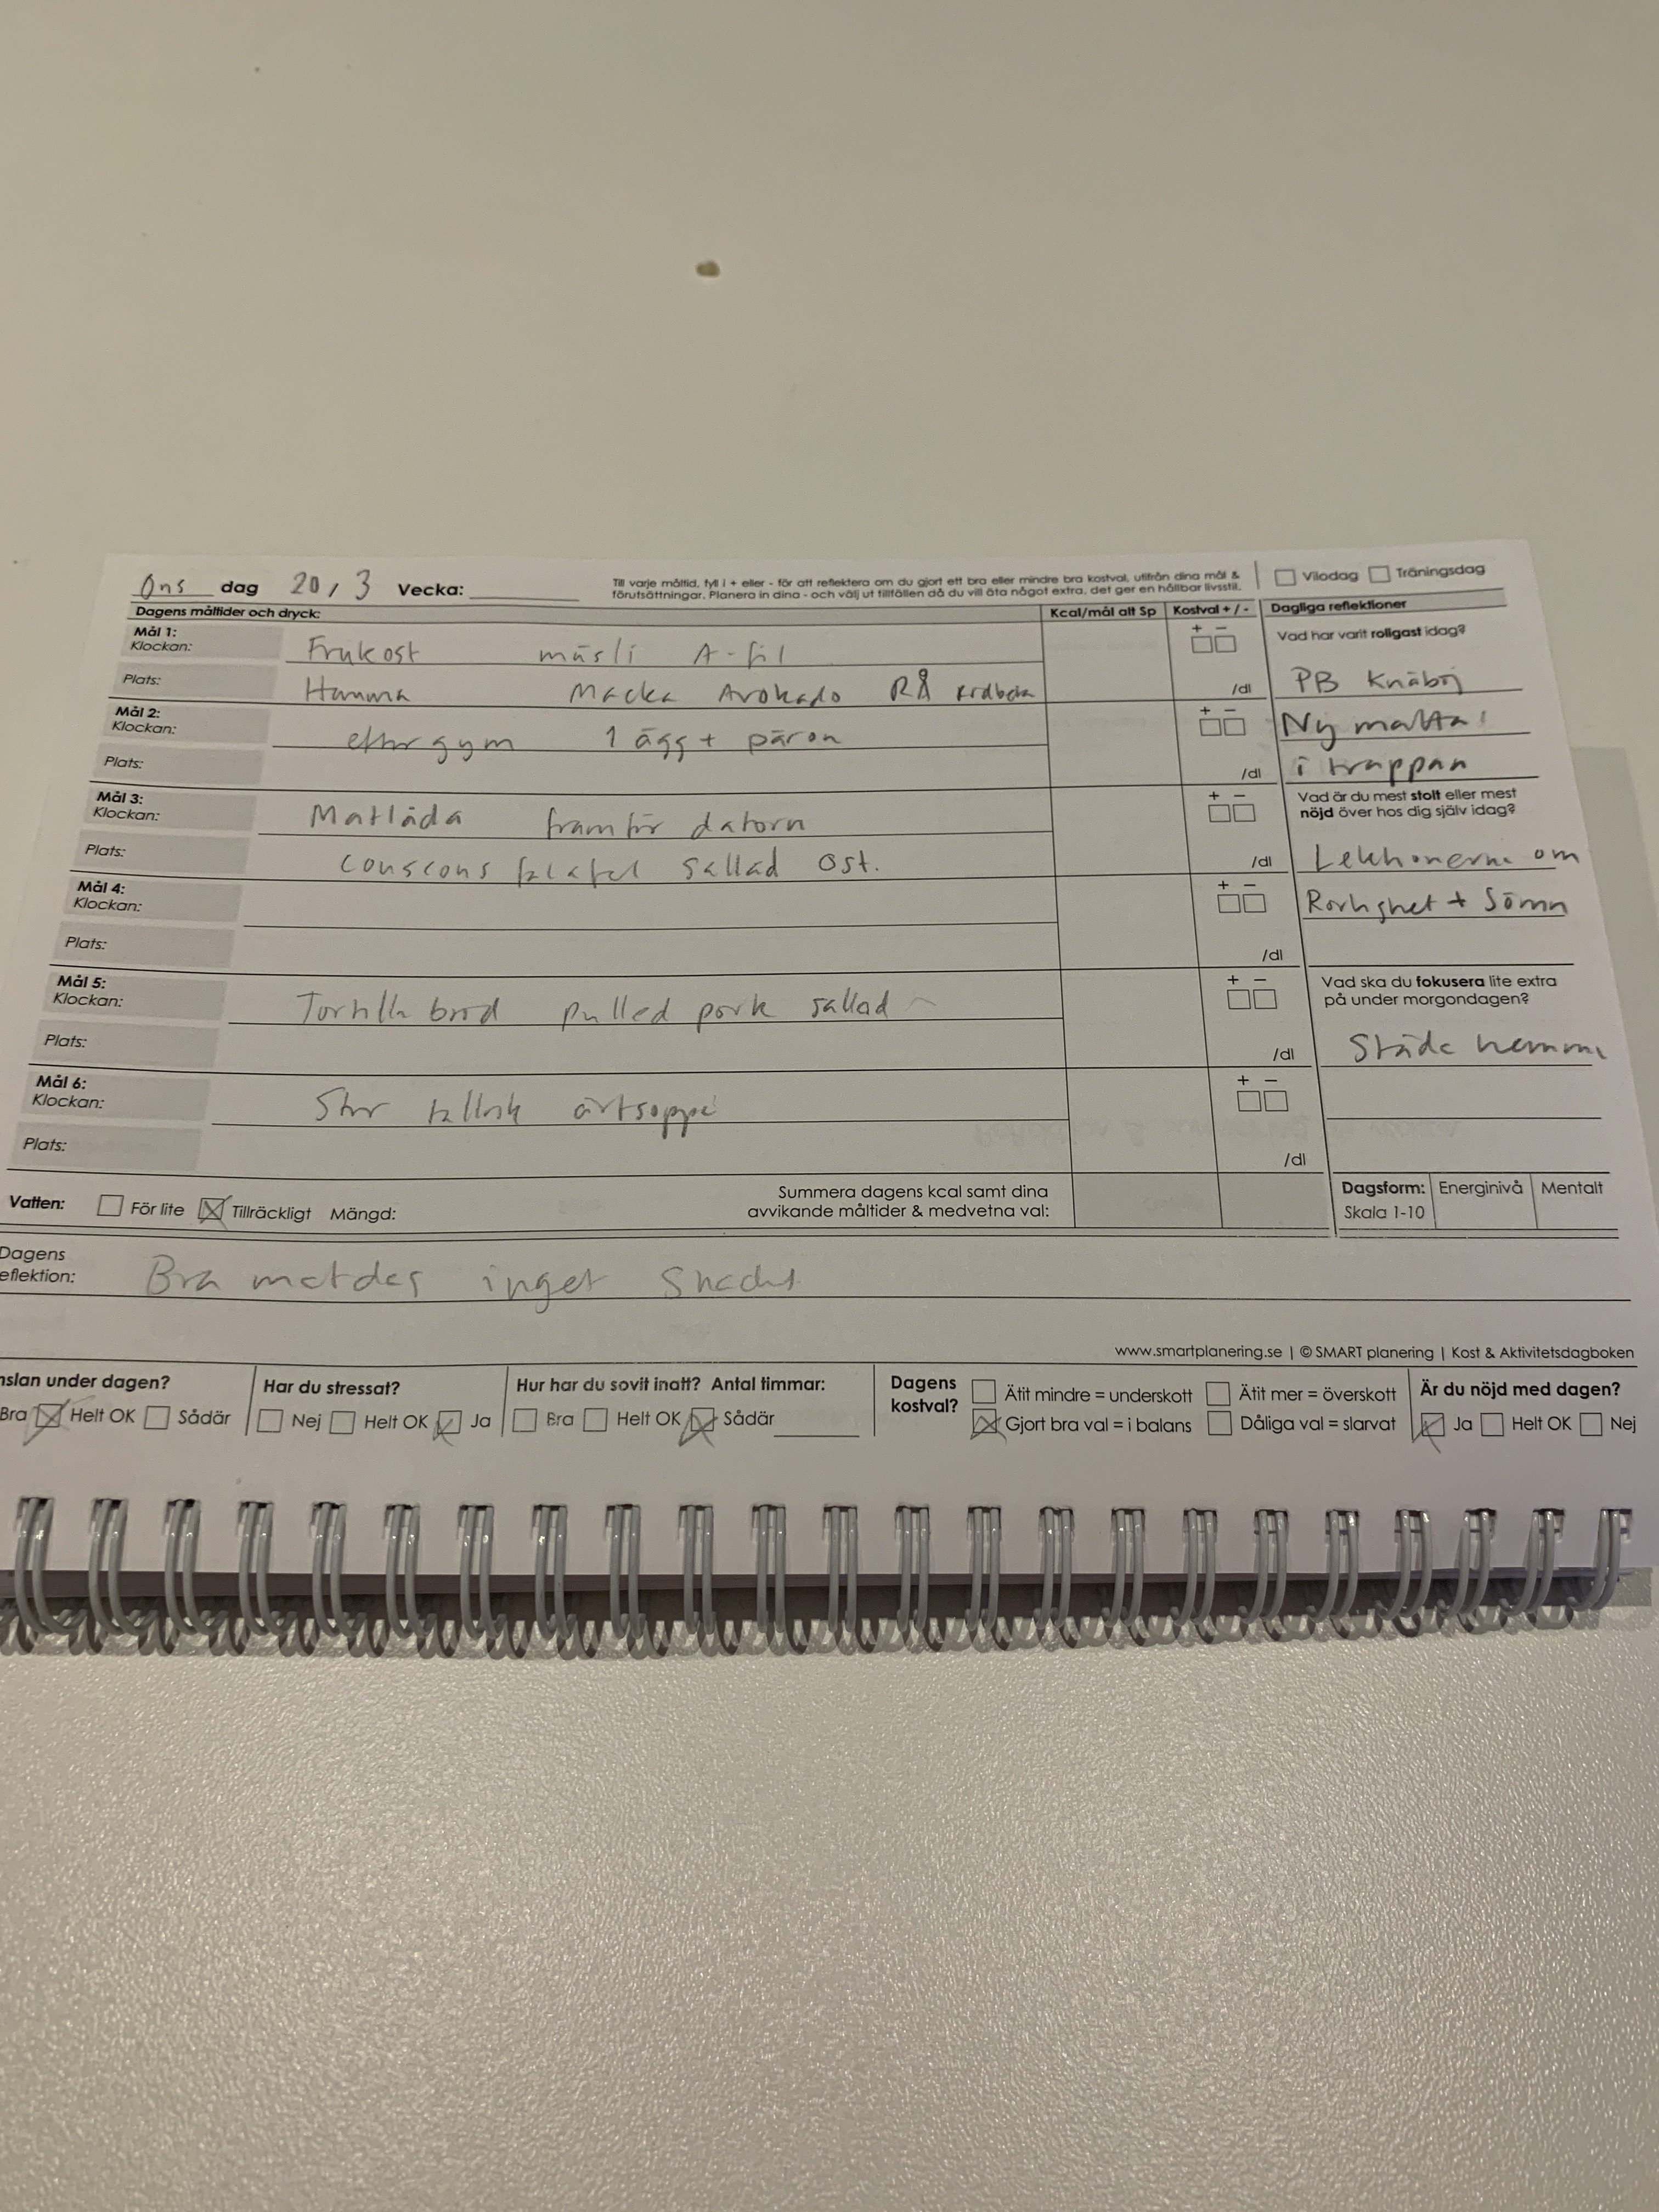 Ons dag 20/3 Vecka:
Till varje måltid, fyll i + eller - för att reflektera om du gjort ett bra eller mindre bra kostval, utifrån dina mål &
förutsättningar. Planera in dina - och välj ut tillfällen då du vill äta något extra, det ger en hållbar livsstil.
Vilodag Träningsdag
Dagens måltider och dryck: Kcal/mål alt Sp Kostval + / - Dagliga reflektioner
Mål 1:
Klockan: Frukost müsli A-fil + -
Vad har varit roligast idag?
Plats: Hemma Macka Avokado RÅ rödbeta /dl PB Knäböj
Mål 2:
Klockan: efter gym 1 ägg + päron + - Ny matta!
Plats: /dl i trappan
Mål 3:
Klockan: Matlåda framför datorn + -
Vad är du mest stolt eller mest
nöjd över hos dig själv idag?
Plats: couscous falafel sallad ost. /dl Lektionerna om
Mål 4:
Klockan: + - Rörlighet + Sömn
Plats: /dl
Mål 5:
Klockan: Tortilla bröd pulled pork sallad + -
Vad ska du fokusera lite extra
på under morgondagen?
Plats: /dl Städa hemma
Mål 6:
Klockan: Stor tallrik ärtsoppa + -
Plats: /dl
Vatten: För lite Tillräckligt Mängd:
Summera dagens kcal samt dina
avvikande måltider & medvetna val:
Dagsform: Energinivå Mentalt
Skala 1-10
Dagens
eflektion: Bra matdag inget snacks
www.smartplanering.se | © SMART planering | Kost & Aktivitetsdagboken
nslan under dagen?
Bra Helt OK Sådär
Har du stressat?
Nej Helt OK Ja
Hur har du sovit inatt? Antal timmar:
Bra Helt OK Sådär
Dagens
kostval?
Ätit mindre = underskott Ätit mer = överskott
Gjort bra val = i balans Dåliga val = slarvat
Är du nöjd med dagen?
Ja Helt OK Nej